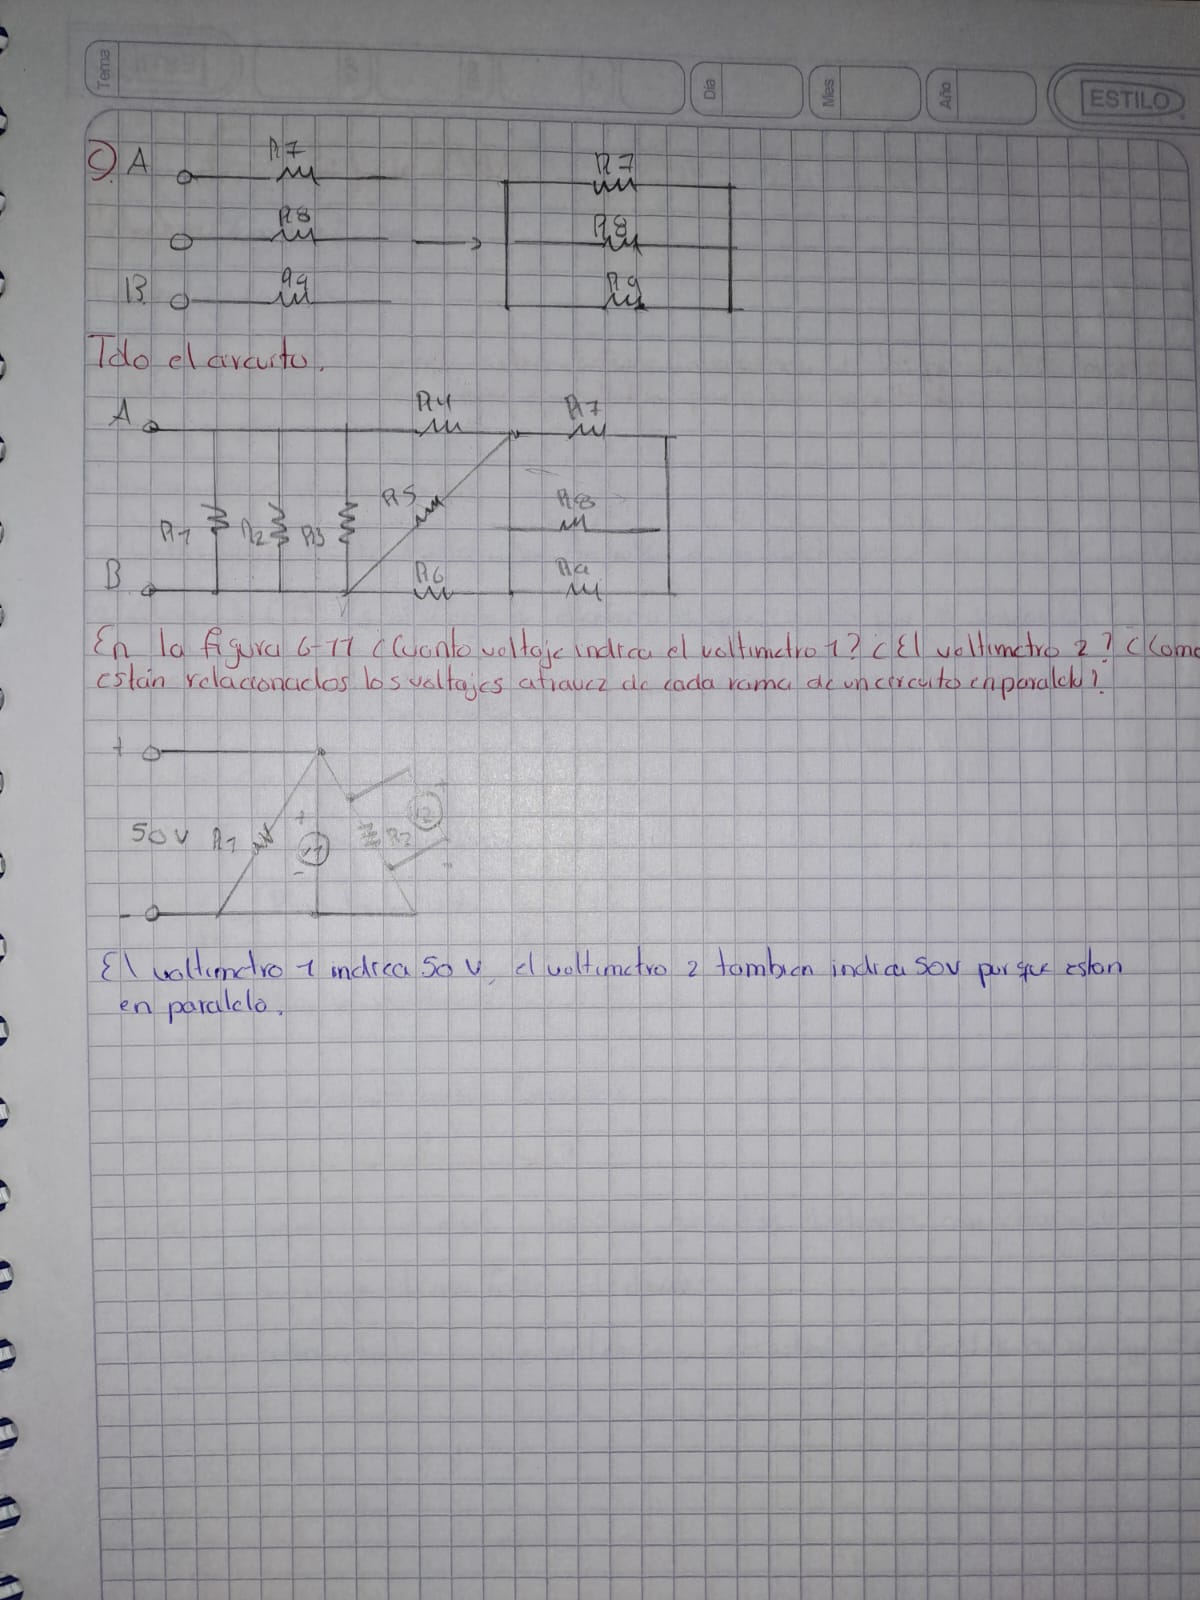 Tema
Día
Mes
Año
ESTILO
C) A
R7
R7
R8
R8
B
R9
R9
Tdo el circuito.
A
R4
R7
R5
R8
R1
R2
R3
B
R6
R9
En la figura 6-77 ¿Cuanto voltaje indica el voltimetro 1? ¿El voltimetro 2? ¿Como
están relacionados los voltajes atravez de cada rama de un circuito en paralelo?
+
50 V
R1
+
V1
-
R2
V2
-
-
El voltimetro 1 indica 50 V, el voltimetro 2 tambien indica 50V por que estan
en paralelo.